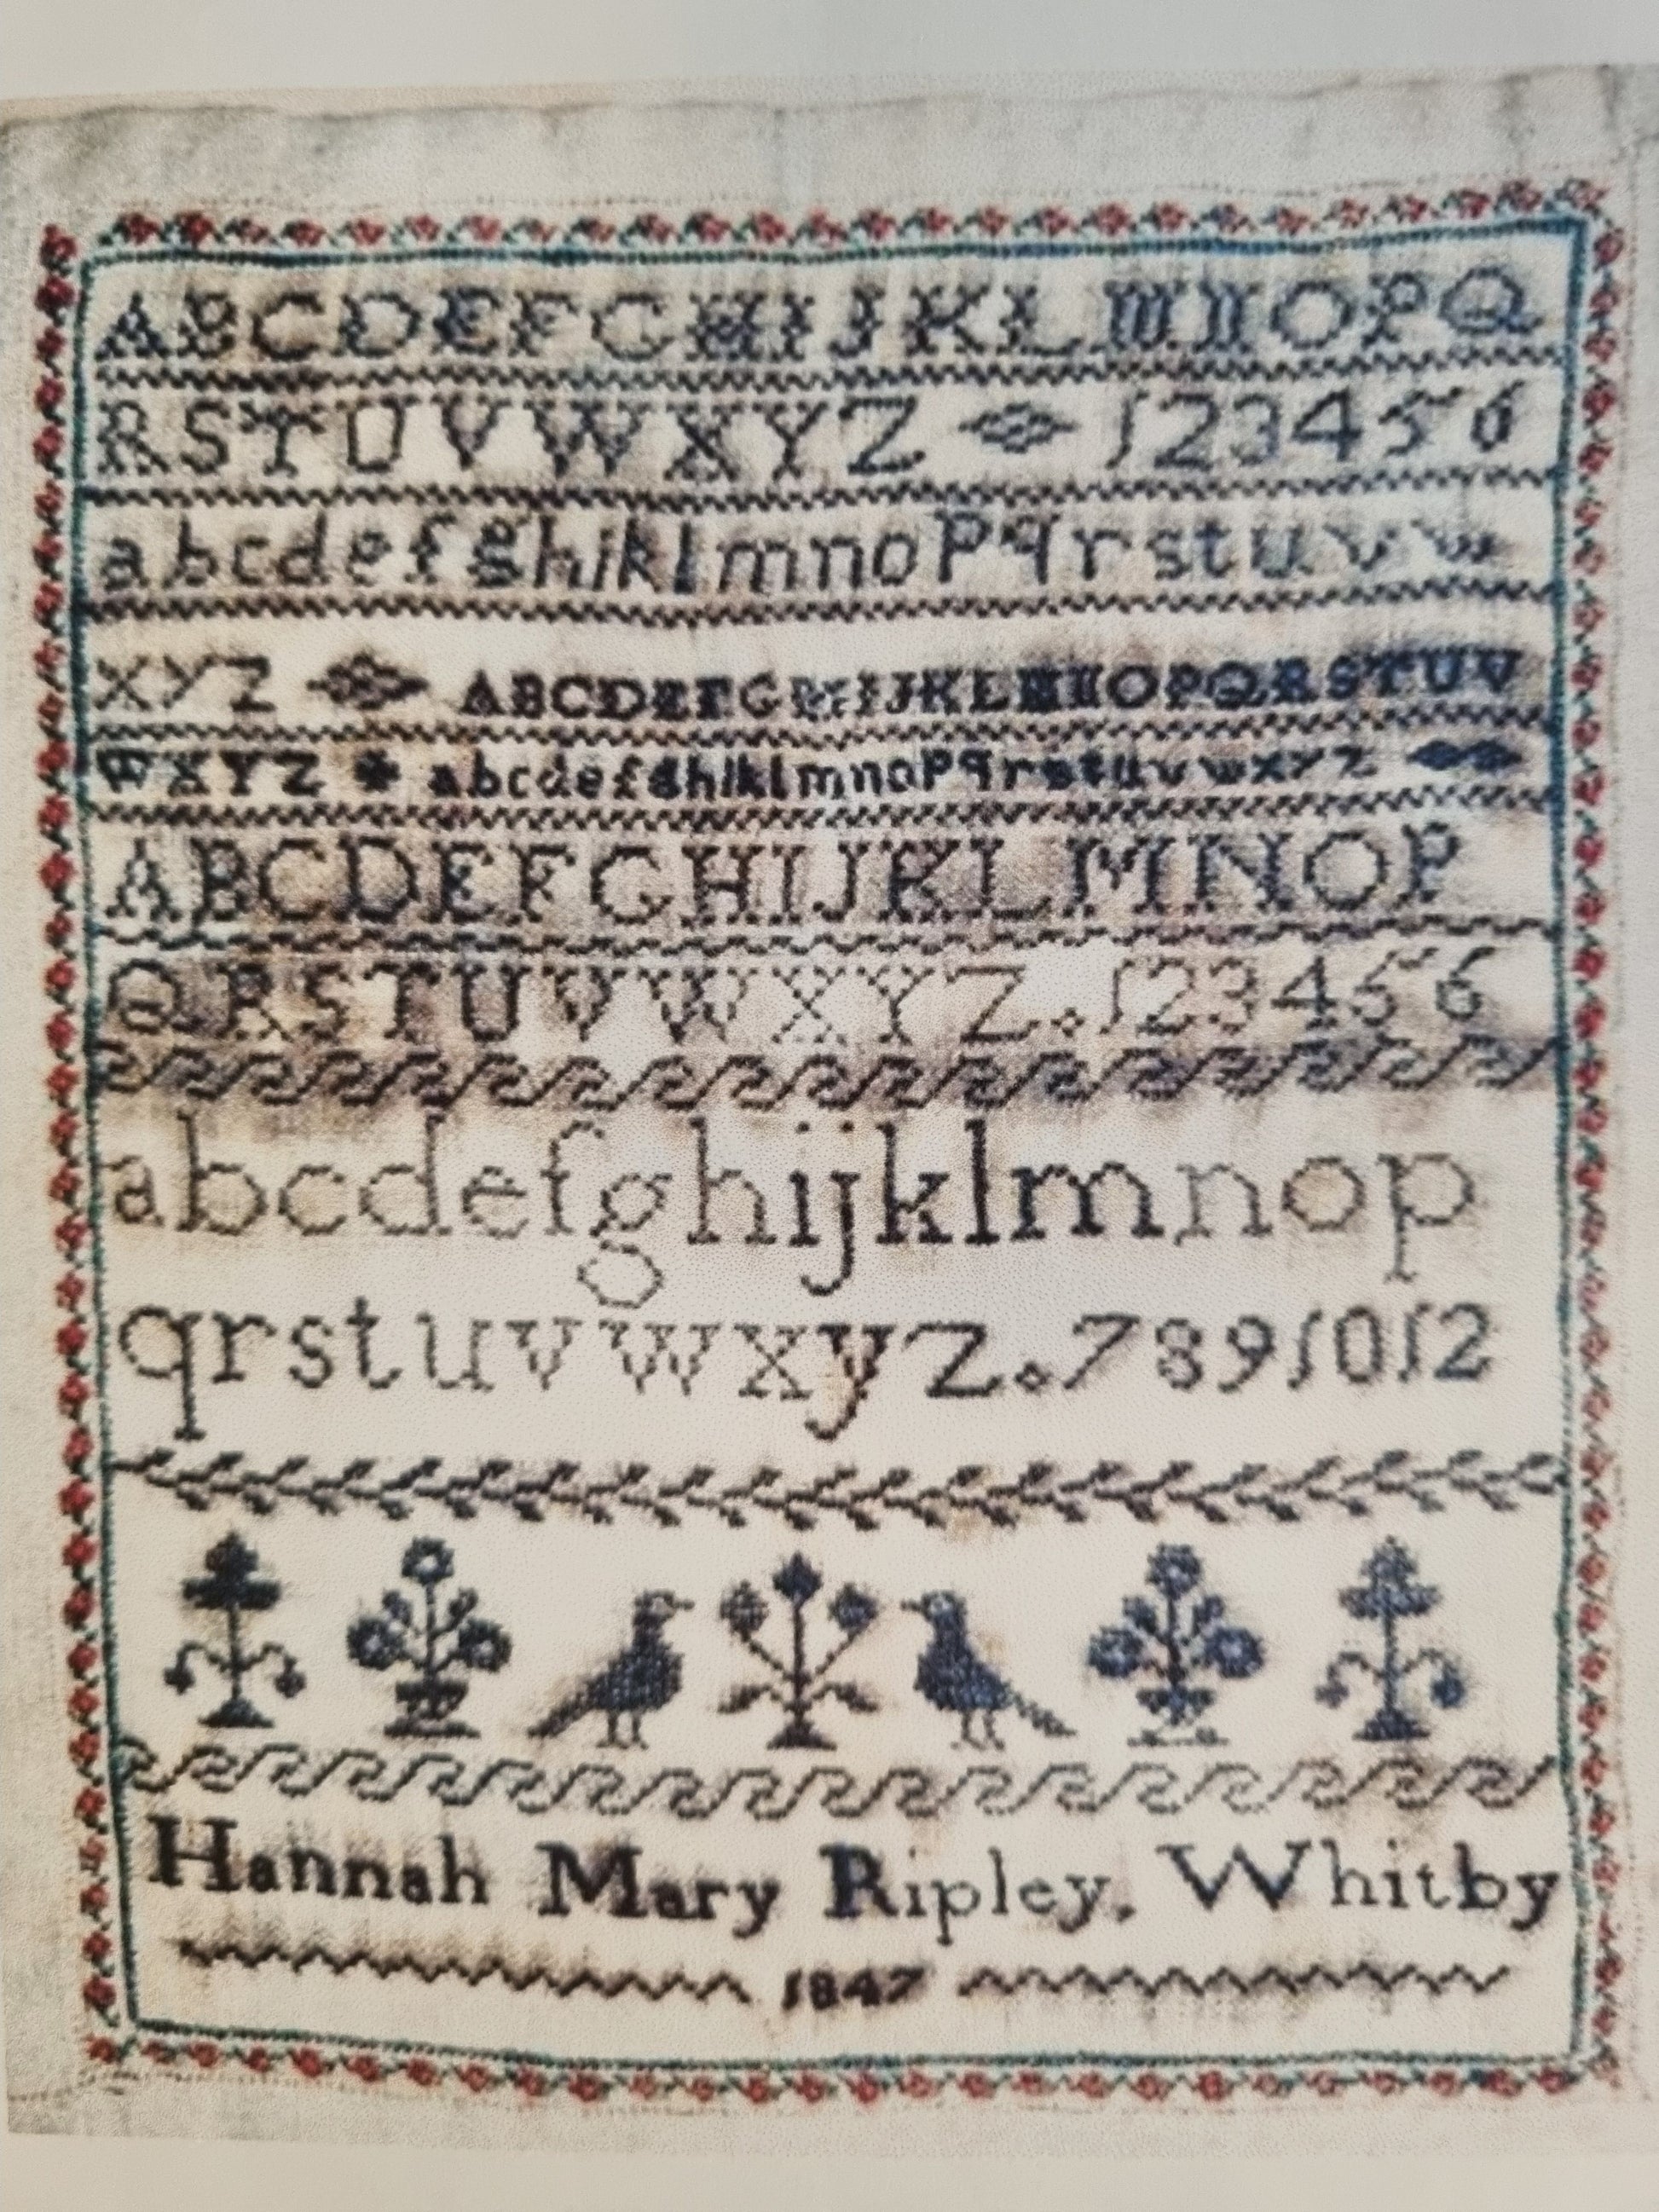 ABCDEFGHIJKLMNOPQ
RSTUVWXYZ 123456
abcdefghiklmnopqrstuvw
xyz ABCDEFGHIJKLMNOPQRSTUV
WXYZ abcdefghiklmnopqrstuvwxyz
ABCDEFGHIJKLMNOP
QRSTUVWXYZ. 123456
abcdefghijklmnop
qrstuvwxyz. 789 10 12
Hannah Mary Ripley, Whitby
1847